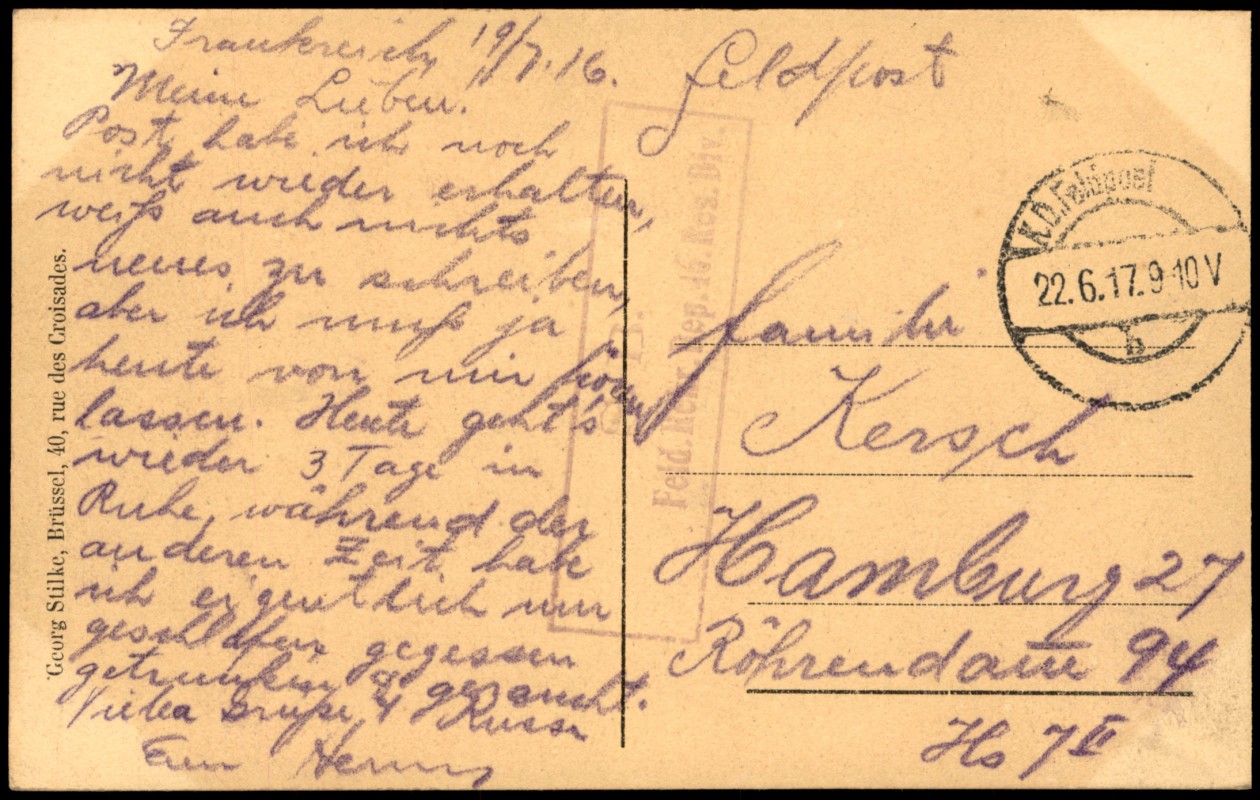 Frankreich, 19/7.16.
Meine Lieben.
Post habe ich noch
nicht wieder erhalten,
weiß auch nichts
neues zu schreiben,
aber ich muß ja
heute von mir hören
lassen. Heute geht's
wieder 3 Tage in
Ruhe, während der
anderen Zeit habe
ich eigentlich nur
geschlafen gegessen
getrunken & geraucht.
Viele Grüße & Küsse
Euer
Georg Stilke, Brüssel, 40, rue des Croisades.
Feldpost
K.D. Feldpost
22.6.17.9-10V
b
Feld. Rekr. Dep. 15. Res. Div.
Familie
Kersch
Hamburg 27
Röhrendamm 94
Hs 7 II